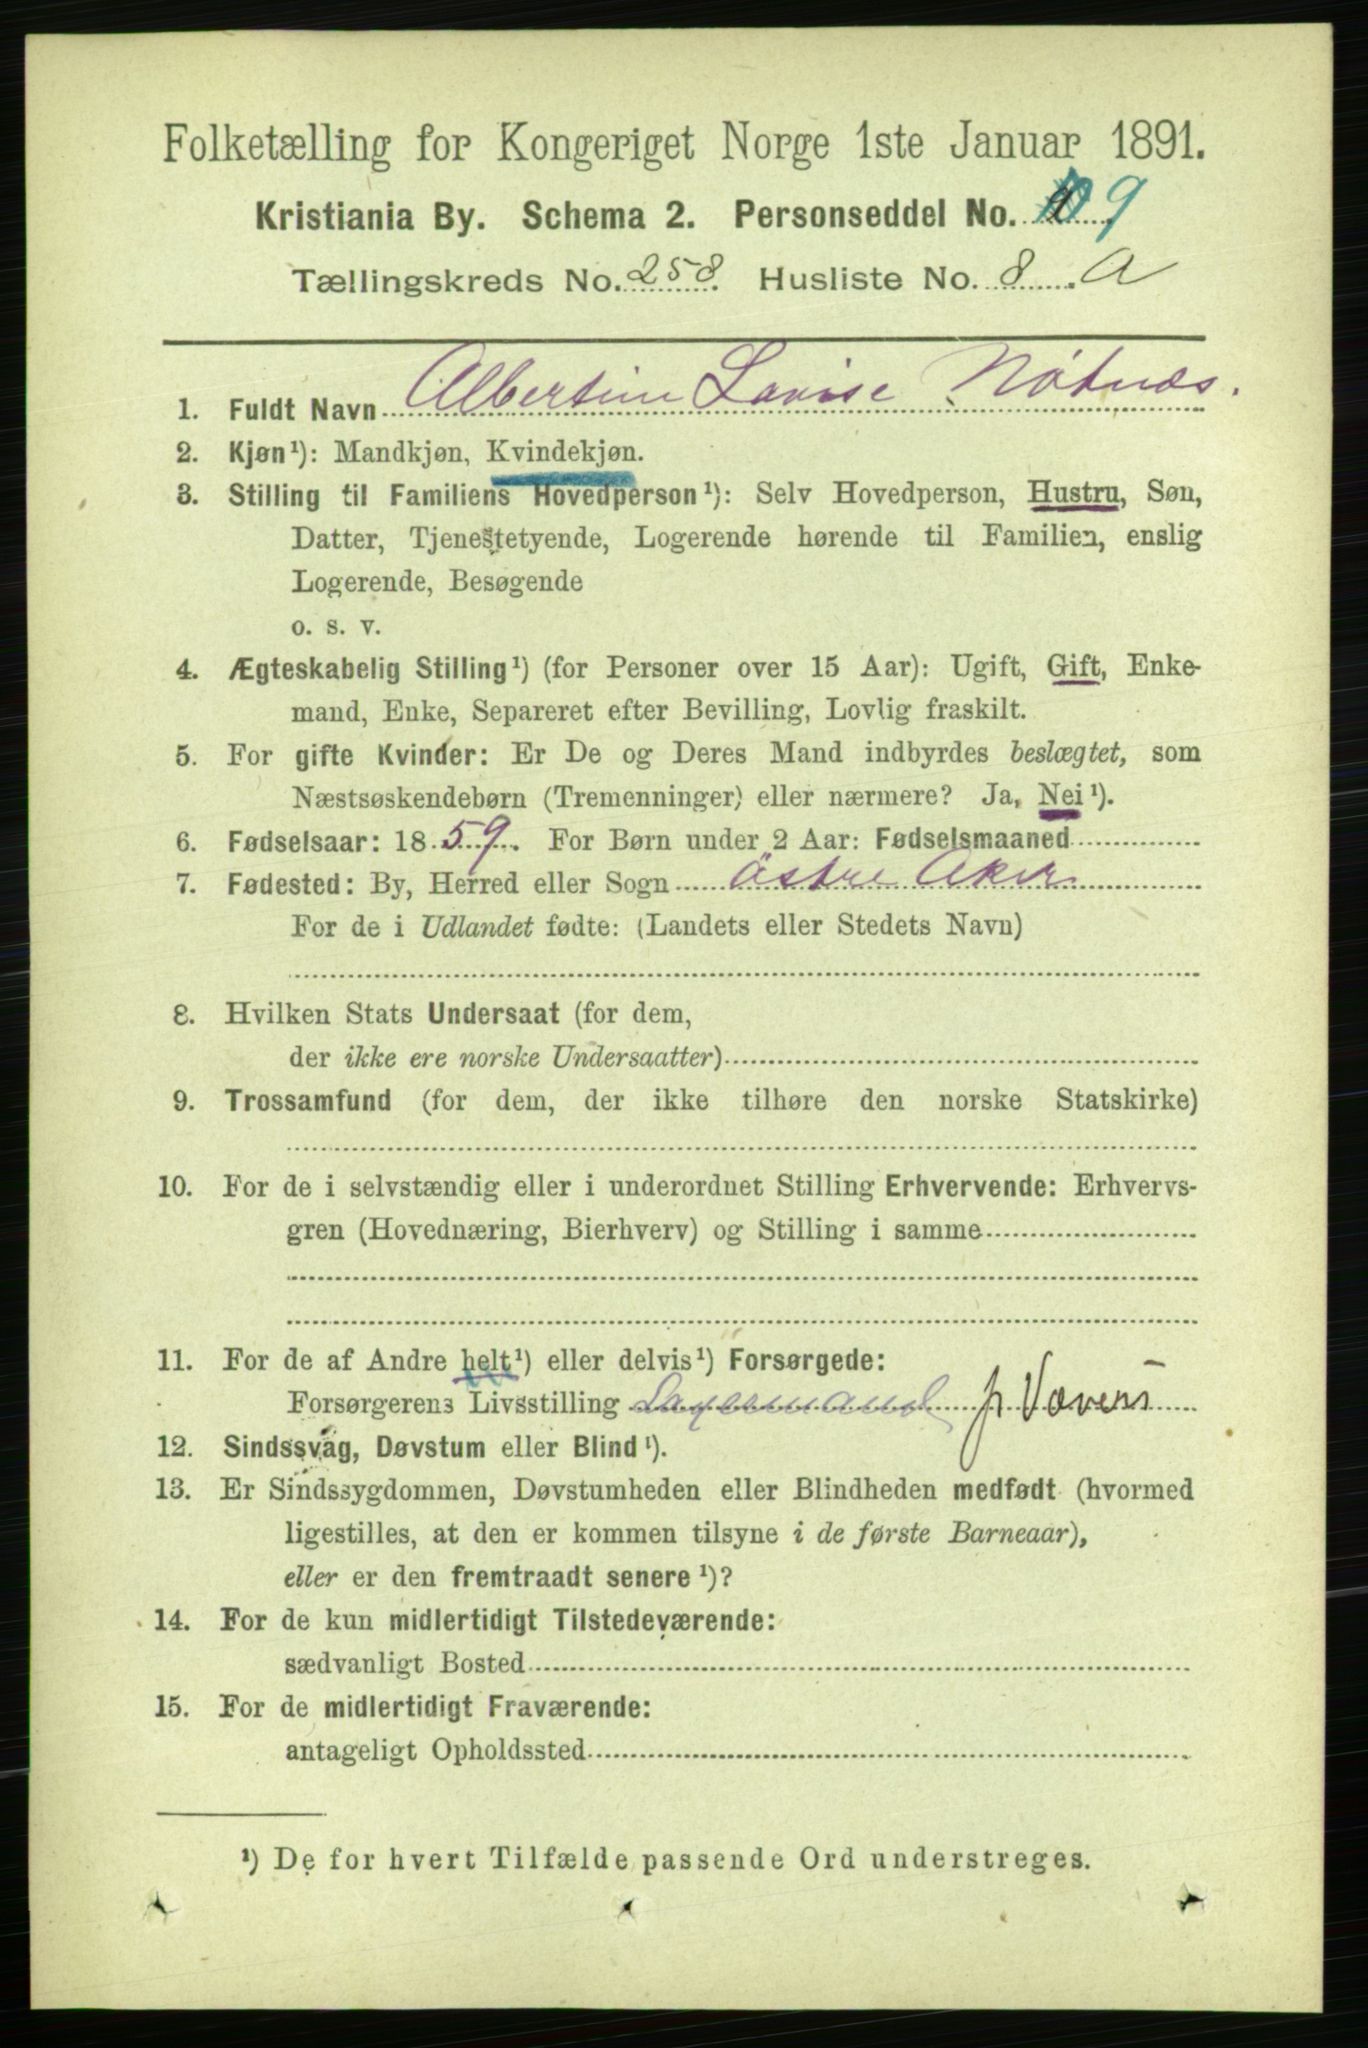 Folketælling for Kongeriget Norge 1ste Januar 1891.
Kristiania By. Schema 2. Personseddel No. 9
Tællingskreds No. 258. Husliste No. 8 A
1. Fuldt Navn Albertine Lovise Nötnæs.
2. Kjøn¹): Mandkjøn, Kvindekjøn.
3. Stilling til Familiens Hovedperson¹): Selv Hovedperson, Hustru, Søn,
Datter, Tjenestetyende, Logerende hørende til Familien, enslig
Logerende, Besøgende
o. s. v.
4. Ægteskabelig Stilling¹) (for Personer over 15 Aar): Ugift, Gift, Enke-
mand, Enke, Separeret efter Bevilling, Lovlig fraskilt.
5. For gifte Kvinder: Er De og Deres Mand indbyrdes beslægtet, som
Næstsøskendebørn (Tremenninger) eller nærmere? Ja, Nei¹).
6. Fødselsaar: 1859. For Børn under 2 Aar: Fødselsmaaned
7. Fødested: By, Herred eller Sogn östre Aker
For de i Udlandet fødte: (Landets eller Stedets Navn)
8. Hvilken Stats Undersaat (for dem,
der ikke ere norske Undersaatter)
9. Trossamfund (for dem, der ikke tilhøre den norske Statskirke)
10. For de i selvstændig eller i underordnet Stilling Erhvervende: Erhvervs-
gren (Hovednæring, Bierhverv) og Stilling i samme
11. For de af Andre helt¹) eller delvis¹) Forsørgede:
Forsørgerens Livsstilling Lagermand
12. Sindssvag, Døvstum eller Blind¹).
13. Er Sindssygdommen, Døvstumheden eller Blindheden medfødt (hvormed
ligestilles, at den er kommen tilsyne i de første Barneaar),
eller er den fremtraadt senere¹)?
14. For de kun midlertidigt Tilstedeværende:
sædvanligt Bosted
15. For de midlertidigt Fraværende:
antageligt Opholdssted
¹) De for hvert Tilfælde passende Ord understreges.